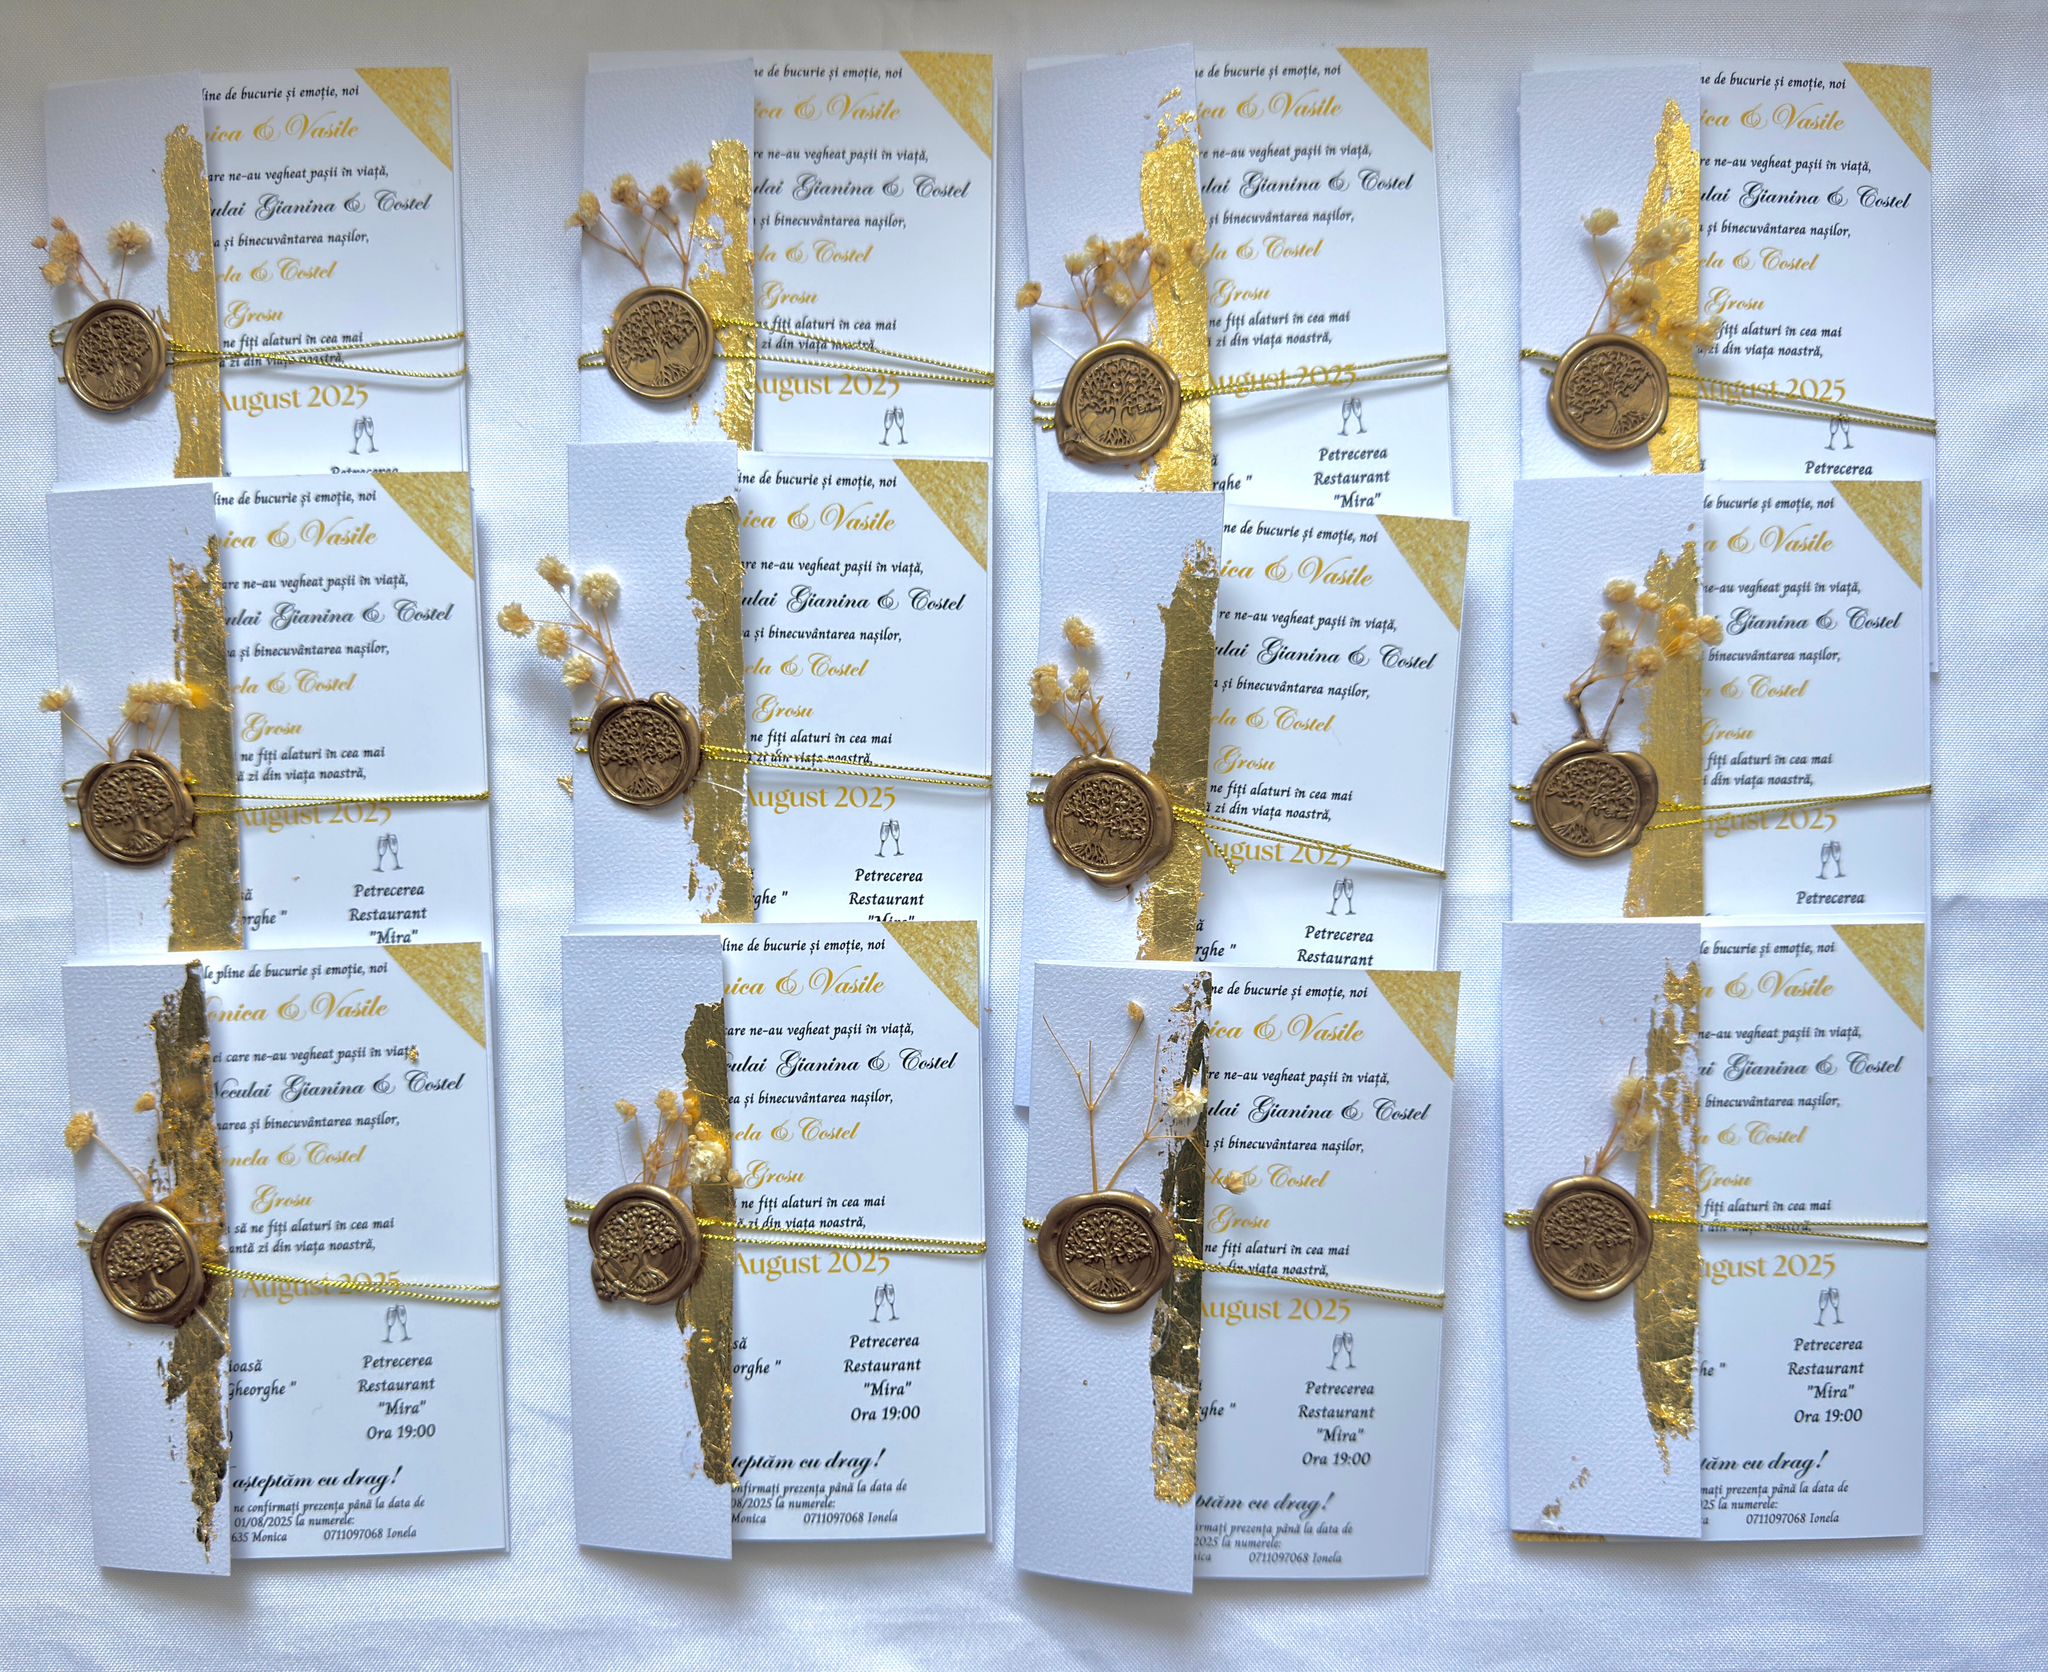 line de bucurie și emoție, noi
ica & Vasile
are ne-au vegheat pașii în viață,
ulai Gianina & Costel
a și binecuvântarea nașilor,
ela & Costel
Grosu
ne fiți alaturi în cea mai
zi din viața noastră,
August 2025
Petrecerea
ne de bucurie și emoție, noi
ica & Vasile
re ne-au vegheat pașii în viață,
ulai Gianina & Costel
și binecuvântarea nașilor,
la & Costel
Grosu
fiți alaturi în cea mai
zi din viața noastră,
August 2025
ne de bucurie și emoție, noi
ca & Vasile
e ne-au vegheat pașii în viață,
lai Gianina & Costel
și binecuvântarea nașilor,
la & Costel
Grosu
ne fiți alaturi în cea mai
zi din viața noastră,
August 2025
Petrecerea
ă Restaurant
rghe " "Mira"
ne de bucurie și emoție, noi
ica & Vasile
re ne-au vegheat pașii în viață,
lai Gianina & Costel
și binecuvântarea nașilor,
la & Costel
Grosu
ne fiți alaturi în cea mai
zi din viața noastră,
August 2025
Petrecerea
line de bucurie și emoție, noi
ica & Vasile
are ne-au vegheat pașii în viață,
ulai Gianina & Costel
a și binecuvântarea nașilor,
ela & Costel
Grosu
ne fiți alaturi în cea mai
ă zi din viața noastră,
August 2025
Petrecerea
să Restaurant
orghe " "Mira"
line de bucurie și emoție, noi
ica & Vasile
are ne-au vegheat pașii în viață,
ulai Gianina & Costel
a și binecuvântarea nașilor,
ela & Costel
Grosu
ne fiți alaturi în cea mai
zi din viața noastră,
August 2025
Petrecerea
rghe " Restaurant
"Mira"
ne de bucurie și emoție, noi
ica & Vasile
re ne-au vegheat pașii în viață,
ulai Gianina & Costel
a și binecuvântarea nașilor,
ela & Costel
Grosu
ne fiți alaturi în cea mai
ă zi din viața noastră,
August 2025
Petrecerea
rghe " Restaurant
de bucurie și emoție, noi
a & Vasile
ne-au vegheat pașii în viață,
i Gianina & Costel
binecuvântarea nașilor,
a & Costel
Grosu
fiți alaturi în cea mai
i din viața noastră,
ugust 2025
Petrecerea
le pline de bucurie și emoție, noi
onica & Vasile
ei care ne-au vegheat pașii în viață,
Neculai Gianina & Costel
area și binecuvântarea nașilor,
onela & Costel
Grosu
să ne fiți alaturi în cea mai
antă zi din viața noastră,
August 2025
Petrecerea
ioasă Restaurant
Gheorghe " "Mira"
Ora 19:00
așteptăm cu drag!
ne confirmați prezența până la data de
01/08/2025 la numerele:
635 Monica 0711097068 Ionela
line de bucurie și emoție, noi
nica & Vasile
care ne-au vegheat pașii în viață,
culai Gianina & Costel
ea și binecuvântarea nașilor,
nela & Costel
Grosu
ne fiți alaturi în cea mai
ă zi din viața noastră,
August 2025
Petrecerea
să Restaurant
orghe " "Mira"
Ora 19:00
teptăm cu drag!
onfirmați prezența până la data de
08/2025 la numerele:
Monica 0711097068 Ionela
ne de bucurie și emoție, noi
ica & Vasile
re ne-au vegheat pașii în viață,
ulai Gianina & Costel
a și binecuvântarea nașilor,
ela & Costel
Grosu
ne fiți alaturi în cea mai
zi din viața noastră,
August 2025
Petrecerea
Restaurant
rghe " "Mira"
Ora 19:00
ptăm cu drag!
firmați prezența până la data de
2025 la numerele:
nica 0711097068 Ionela
de bucurie și emoție, noi
a & Vasile
ne-au vegheat pașii în viață,
ai Gianina & Costel
binecuvântarea nașilor,
a & Costel
Grosu
fiți alaturi în cea mai
din viața noastră,
ugust 2025
Petrecerea
he " Restaurant
"Mira"
Ora 19:00
tăm cu drag!
mați prezența până la data de
25 la numerele:
a 0711097068 Ionela